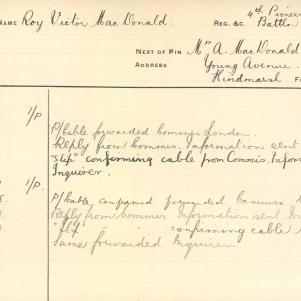 NAME Roy Victor MacDonald. REG. &C. 4th Pioneer Battln
NEXT OF KIN Mr A. MacDonald
ADDRESS Young Avenue.
Hindmarsh
1/P P/Cable forwarded Comrs London.
Reply from Commr. Information sent
"Slip" confirming cable from Commis. Infor
Inquirer.
1/P. P/Cable confirmed forwarded
Reply from Commr Information sent In
confirming cable
Same forwarded Inquirer.